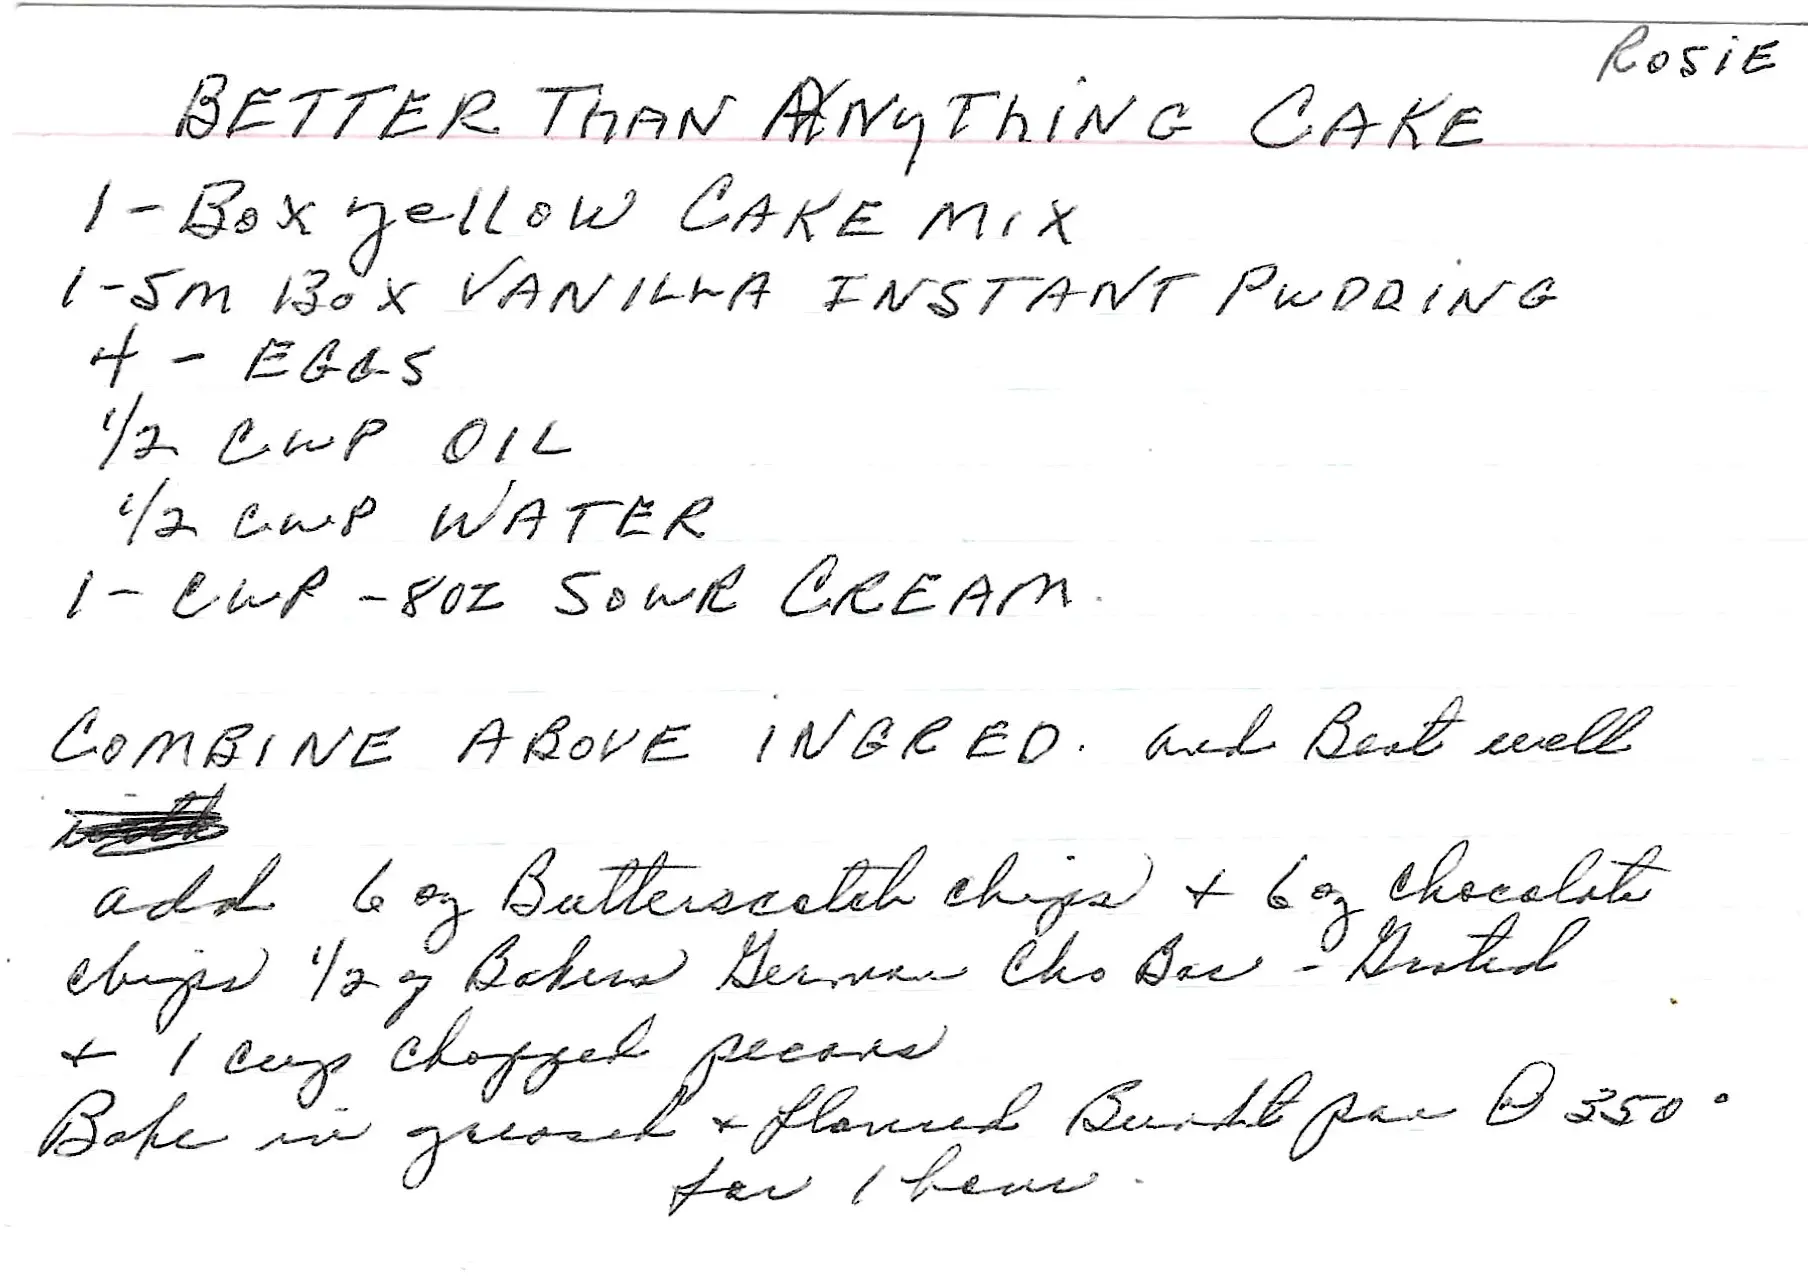 Rosie
BETTER THAN ANYTHING CAKE
1-Box yellow CAKE MIX
1-SM Box VANILLA INSTANT PUDDING
4 - EGGS
1/2 CUP OIL
1/2 CUP WATER
1- CUP -8OZ SOUR CREAM.
COMBINE ABOVE INGRED. and Beat well
add 6 oz Butterscotch chips + 6 oz chocolate
chips 1/2 of Bakers German Cho Bar - Grated
+ 1 cup chopped pecans
Bake in greased + floured Bundt pan @ 350°
for 1 hour.